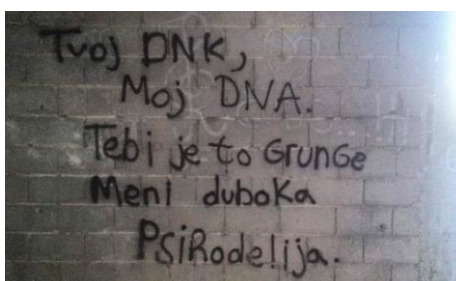 Tvoj DNK,
Moj DNA.
Tebi je to Grunge
Meni duboka
Psihodelija.